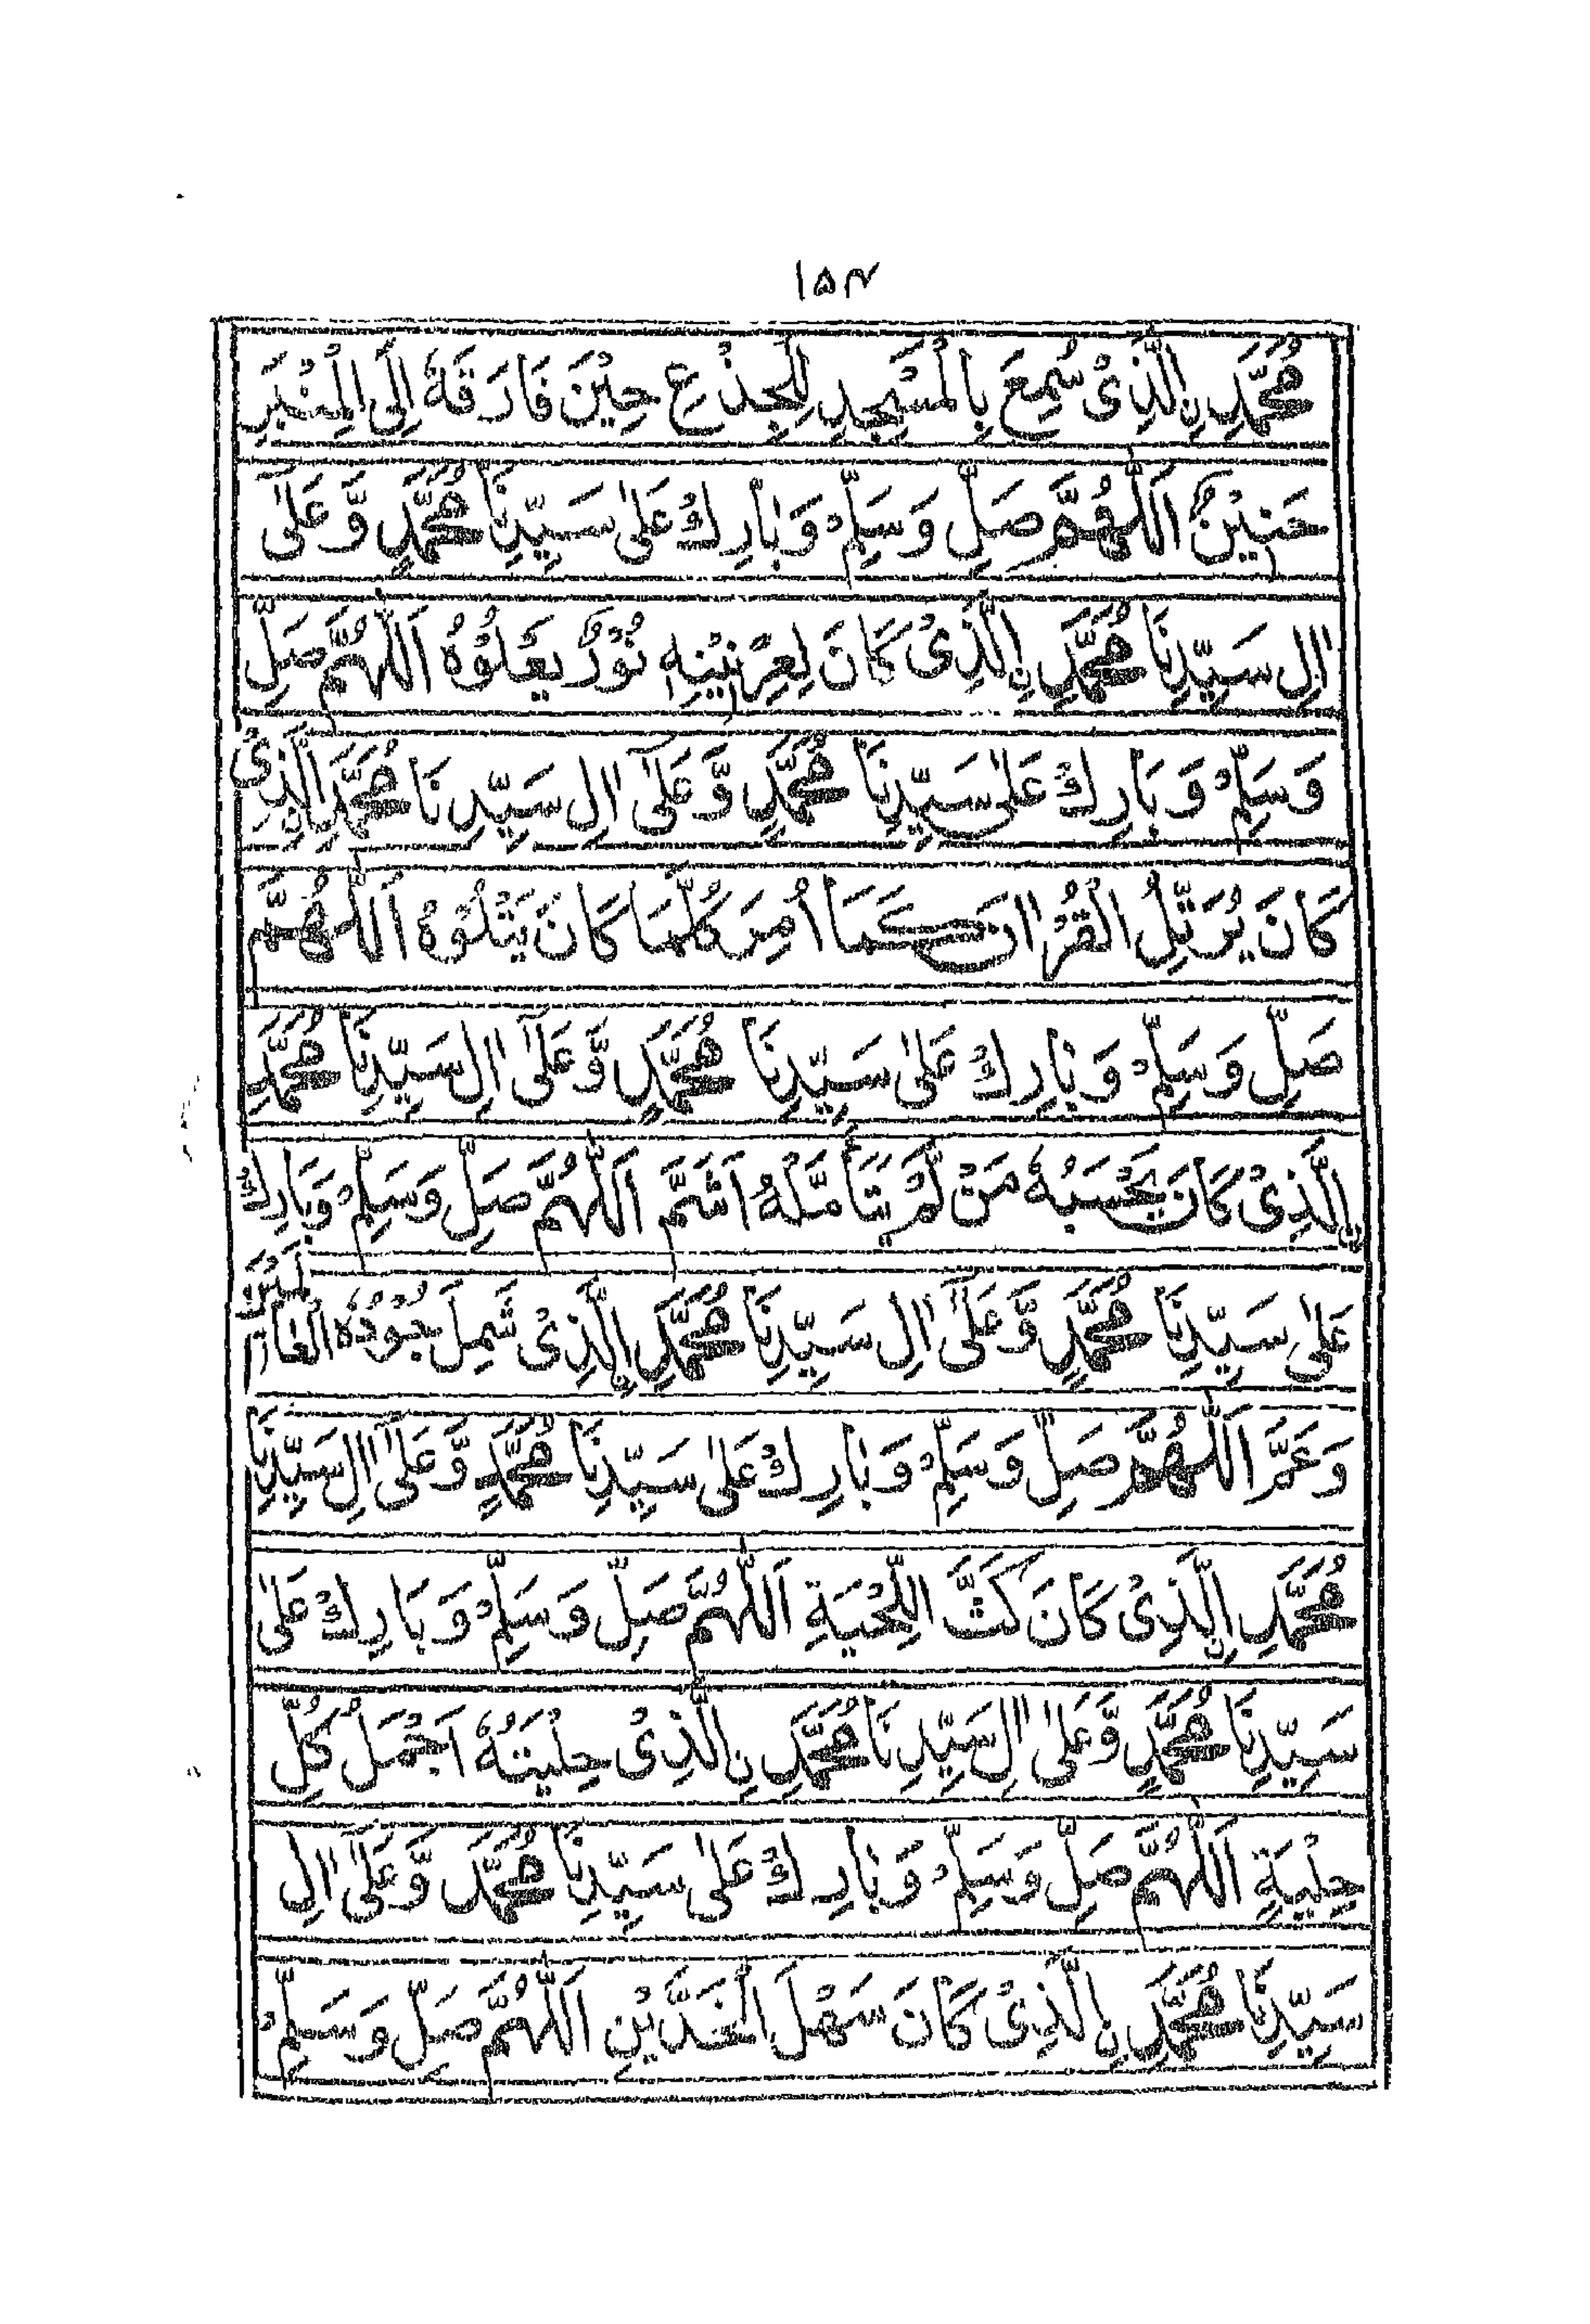 ۱۵۴
مُحَمَّدِنِ الَّذِیْ سُمِعَ بِالْمَسْجِدِ لِلْجِذْعِ حِیْنَ فَارَقَهٗ اِلَی الْمِنْبَرِ
حَنِیْنٌ اَللّٰهُمَّ صَلِّ وَسَلِّمْ وَبَارِكْ عَلٰی سَیِّدِنَا مُحَمَّدٍ وَّعَلٰٓی
اٰلِ سَیِّدِنَا مُحَمَّدِنِ الَّذِیْ كَانَ لِعِرْنِیْنِهٖ نُوْرٌ یَعْلُوْهُ اَللّٰهُمَّ صَلِّ
وَسَلِّمْ وَبَارِكْ عَلٰی سَیِّدِنَا مُحَمَّدٍ وَّعَلٰٓی اٰلِ سَیِّدِنَا مُحَمَّدِنِ الَّذِیْ
كَانَ یُرَتِّلُ الْقُرْاٰنَ كَمَا اُمِرَ كُلَّمَا كَانَ یَتْلُوْهُ اَللّٰهُمَّ
صَلِّ وَسَلِّمْ وَبَارِكْ عَلٰی سَیِّدِنَا مُحَمَّدٍ وَّعَلٰٓی اٰلِ سَیِّدِنَا مُحَمَّدِ
نِ الَّذِیْ كَانَ یَحْسَبُهٗ مَنْ لَّمْ یَتَأَمَّلْهُ اَشَمَّ اَللّٰهُمَّ صَلِّ وَسَلِّمْ وَبَارِكْ
عَلٰی سَیِّدِنَا مُحَمَّدٍ وَّعَلٰٓی اٰلِ سَیِّدِنَا مُحَمَّدِنِ الَّذِیْ شَمِلَ جُوْدُهٗ الْعَالَمِیْنَ
وَعَمَّ اَللّٰهُمَّ صَلِّ وَسَلِّمْ وَبَارِكْ عَلٰی سَیِّدِنَا مُحَمَّدٍ وَّعَلٰٓی اٰلِ سَیِّدِنَا
مُحَمَّدِنِ الَّذِیْ كَانَ كَثَّ اللِّحْیَةِ اَللّٰهُمَّ صَلِّ وَسَلِّمْ وَبَارِكْ عَلٰی
سَیِّدِنَا مُحَمَّدٍ وَّعَلٰی اٰلِ سَیِّدِنَا مُحَمَّدِنِ الَّذِیْ حِلْیَتُهٗ اَجْمَلُ كُلِّ
حِلْیَةٍ اَللّٰهُمَّ صَلِّ وَسَلِّمْ وَبَارِكْ عَلٰی سَیِّدِنَا مُحَمَّدٍ وَّعَلٰٓی اٰلِ
سَیِّدِنَا مُحَمَّدِنِ الَّذِیْ كَانَ سَهْلَ الْخَدَّیْنِ اَللّٰهُمَّ صَلِّ وَسَلِّمْ